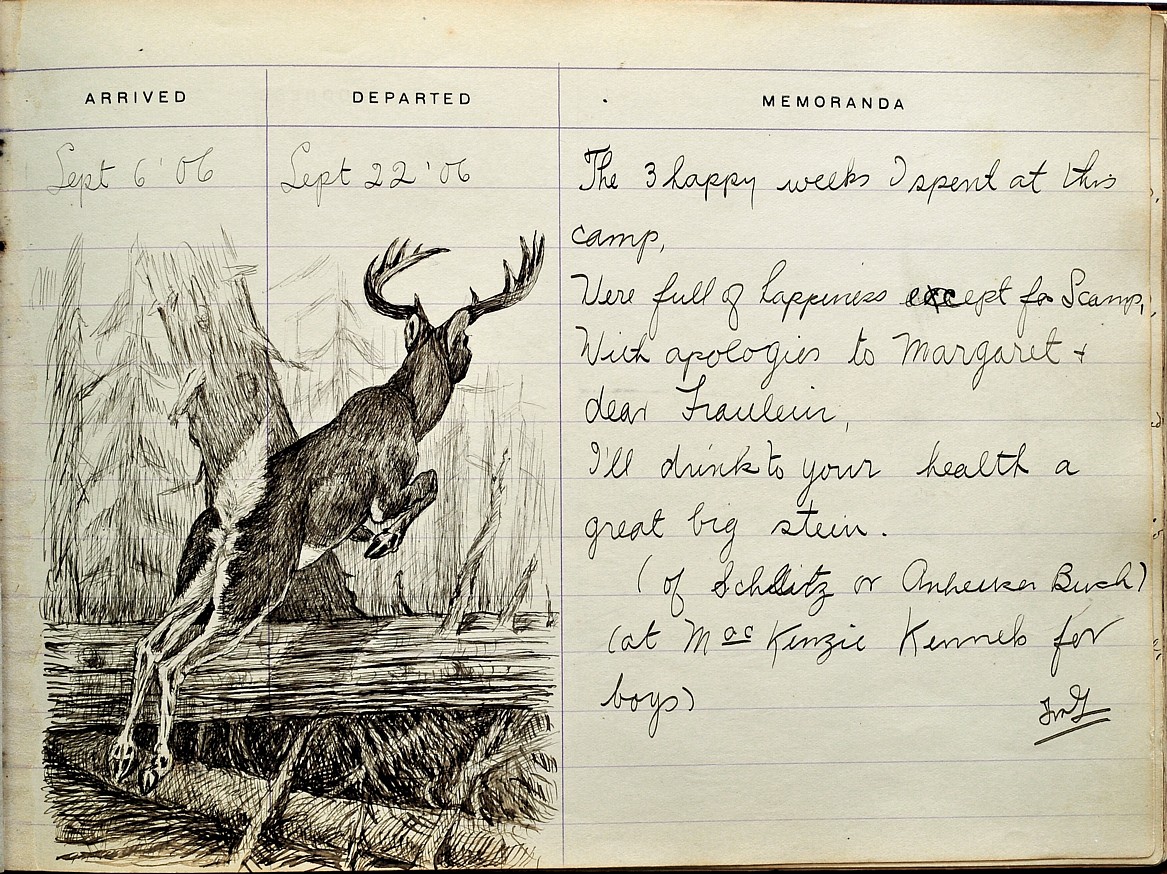 ARRIVED DEPARTED MEMORANDA
Sept 6 '06 Sept 22 '06 The 3 happy weeks I spent at this
camp,
Were full of happiness except for Scamp,
With apologies to Margaret +
dear Fraulein,
I'll drink to your health a
great big stein.
(of Schlitz or Anheuser Busch)
(at Mac Kenzie Kennels for
boys)